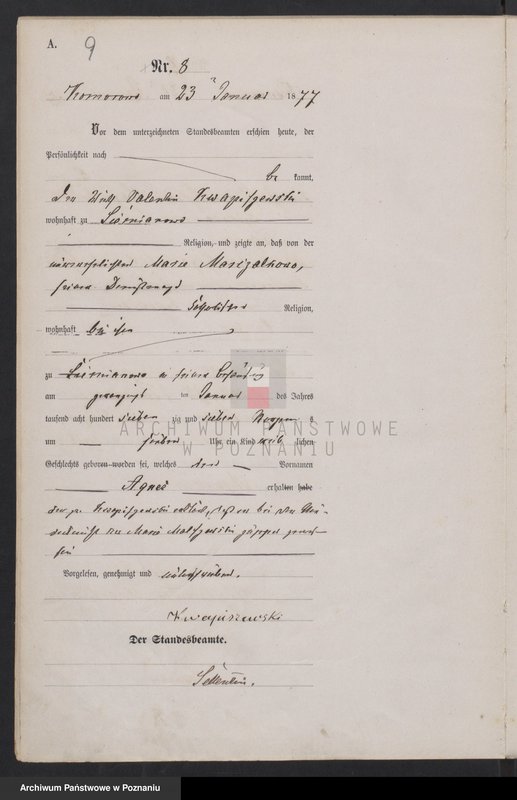 A. 9
Nr. 8
Komorowo am 23 Januar 1877
Vor dem unterzeichneten Standesbeamten erschien heute, der
Persönlichkeit nach
be kannt,
Valentin Kwapiszewski
wohnhaft zu
Religion, und zeigte an, daß von der
unverehelichten Marie
seiner Dienstmagd
katholischer Religion,
wohnhaft bei ihm
zu in seiner Behausung
am ten Januar des Jahres
tausend acht hundert sieben zig und sieben s
um Uhr ein Kind weib lichen
Geschlechts geboren worden sei, welches den Vornamen
Agnes erhalten habe
der p. Kwapiszewski erklärt, daß er bei der Nie-
derkunft der Marie zugegen gewe-
sen
Vorgelesen, genehmigt und unterschrieben.
Kwapiszewski
Der Standesbeamte.
ARCHIWUM PAŃSTWOWE
W POZNANIU
Archiwum Państwowe w Poznaniu